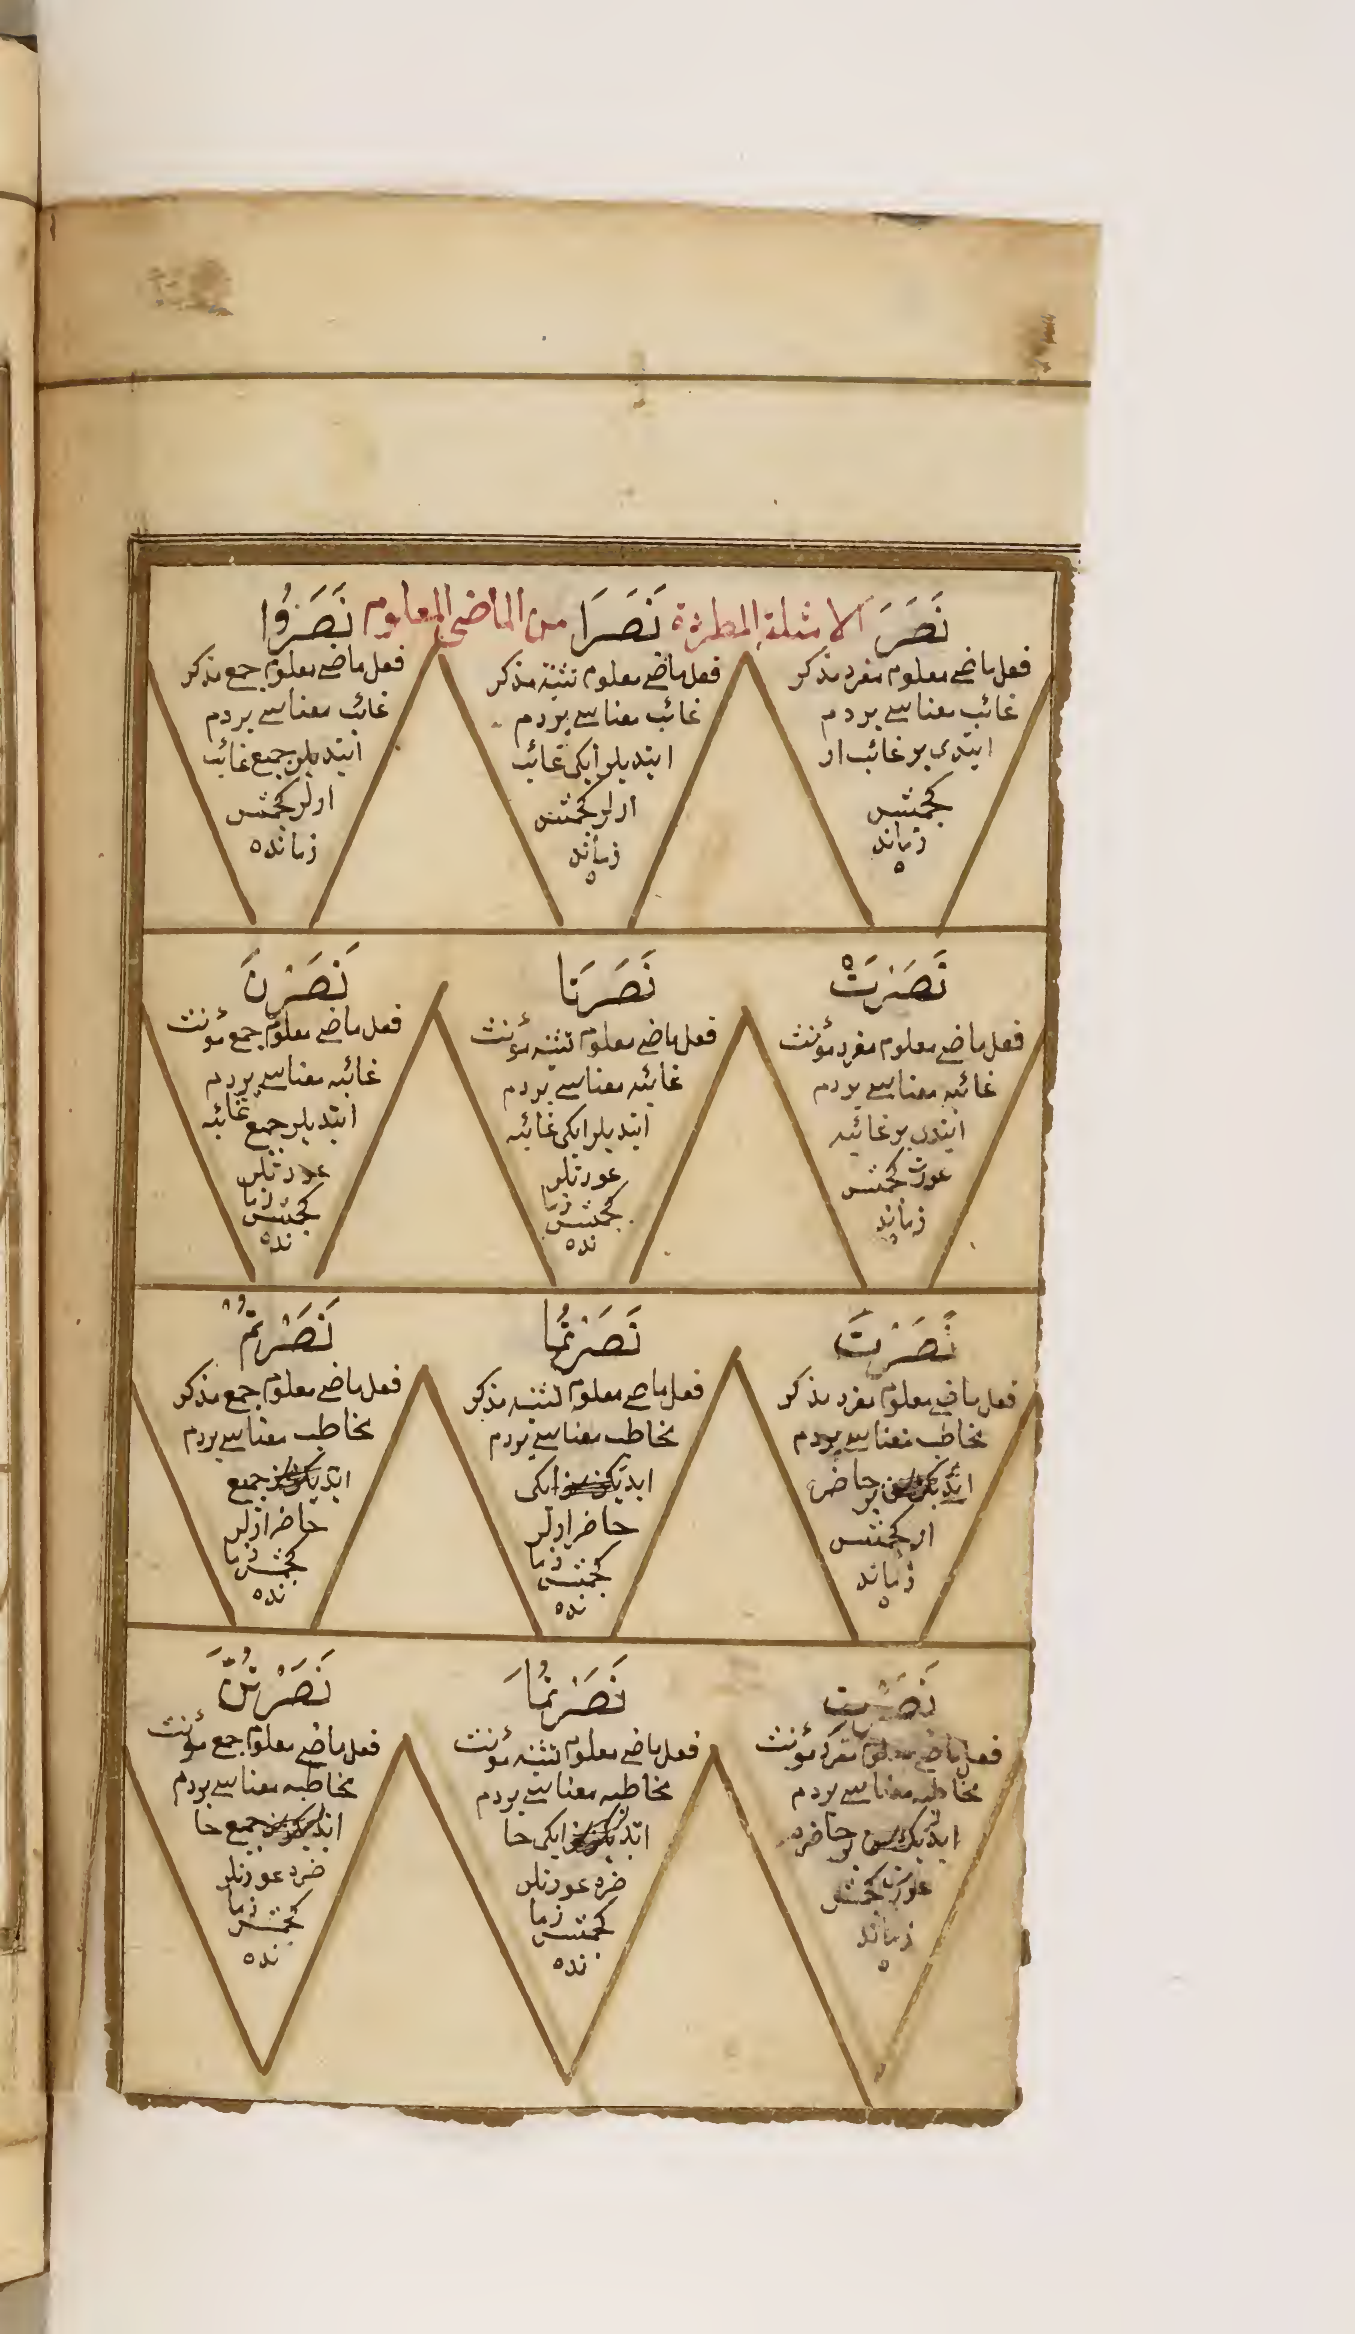 نَصَرَ الامثلة المطردة نَصَرَا من الماضى المعلوم نَصَرُوا
فعل ماضے معلوم مفرد مذكر
غائب معناسے يردم
ايتدى بر غائب ار
كچمش
زمانده
فعل ماضے معلوم تثنيه مذكر
غائب معناسے يردم
ايتديلر ايكى غائب
ارلر كچمش
زمانده
فعل ماضے معلوم جمع مذكر
غائب معناسے يردم
ايتديلر جميع غائب
ارلر كچمش
زمانده
نَصَرَتْ
فعل ماضے معلوم مفرد مؤنث
غائبه معناسے يردم
ايتدى بر غائبه
عورت كچمش
زمانده
نَصَرَتَا
فعل ماضے معلوم تثنيه مؤنث
غائبه معناسے يردم
ايتديلر ايكى غائبه
عورتلر
كچمش زما
نده
نَصَرْنَ
فعل ماضے معلوم جمع مؤنث
غائبه معناسے يردم
ايتديلر جميع غائبه
عورتلر
كچمش زما
نده
نَصَرْتَ
فعل ماضے معلوم مفرد مذكر
مخاطب معناسے يردم
بر حاضر
ار كچمش
زمانده
نَصَرْتُمَا
فعل ماضے معلوم تثنيه مذكر
مخاطب معناسے يردم
ايكى
حاضر ارلر
كچمش زما
نده
نَصَرْتُمْ
فعل ماضے معلوم جمع مذكر
مخاطب معناسے يردم
جميع
حاضر ارلر
كچمش زما
نده
نَصَرْتِ
فعل ماضے معلوم مفرد مؤنث
مخاطبه معناسے يردم
بر حاضره
عورت كچمش
زمانده
نَصَرْتُمَا
فعل ماضے معلوم تثنيه مؤنث
مخاطبه معناسے يردم
ايكى حا
ضره عورتلر
كچمش زما
نده
نَصَرْتُنَّ
فعل ماضے معلوم جمع مؤنث
مخاطبه معناسے يردم
جميع حا
ضره عورتلر
كچمش زما
نده